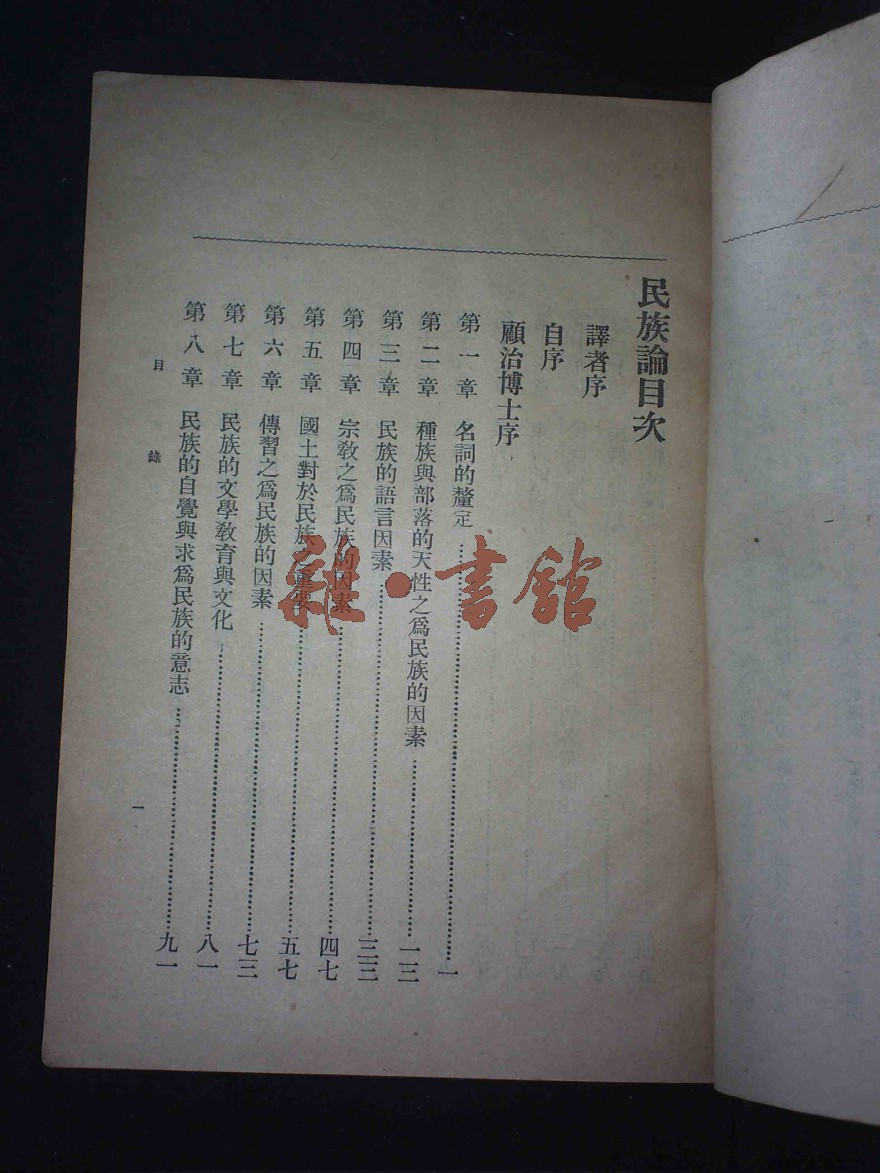 民族論目次
譯者序
自序
顧治博士序
第一章 名詞的釐定……一
第二章 種族與部落的天性之爲民族的因素……一三
第三章 民族的語言因素……三三
第四章 宗教之爲民族的因素……四七
第五章 國土對於民族之重要……五七
第六章 傳習之爲民族的因素……七三
第七章 民族的文學教育與文化……八一
第八章 民族的自覺與求爲民族的意志……九一
目錄
一
雜·書館